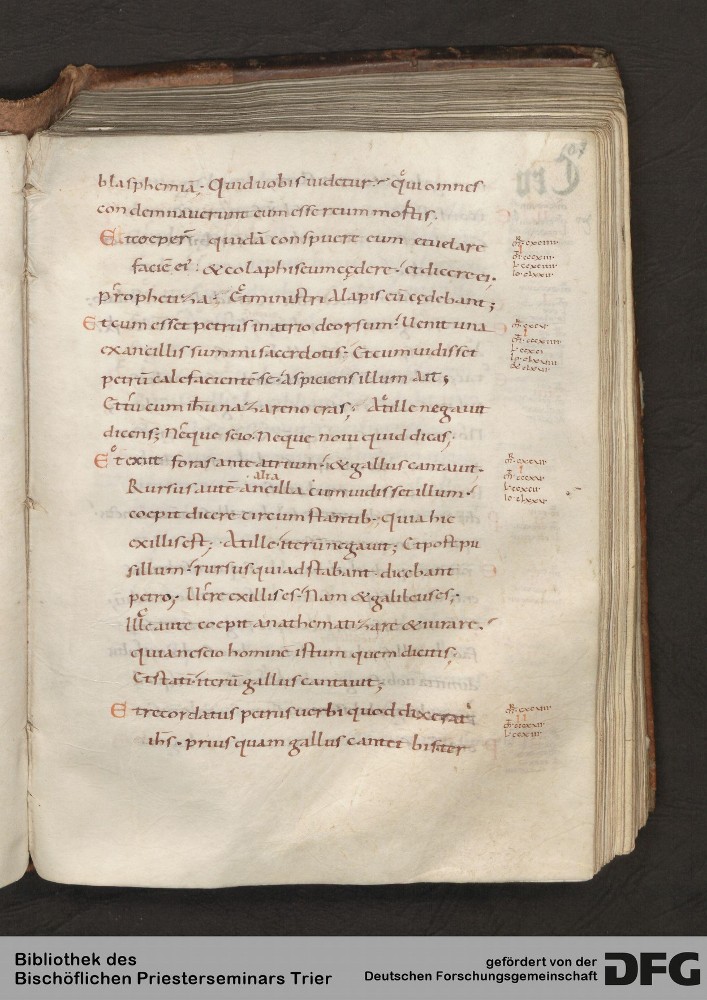 107
blasphemiā· Quid vobis videtur? Qui omnes
condemnaverunt eum esse reum mortis;
Et coeper̄ quidā conspuere eum et velare
faciē ei'· & colaphis eum cędere· et dicere ei·
prophetiza· Et ministri alapis eū cędebant;
Et cum esset petrus in atrio deorsum· Venit una
ex ancillis summi sacerdotis· Et cum vidisset
petrū calefacientē se· Aspiciens illum Ait;
Et tu cum ihu nazareno eras; At ille negavit
dicens; Neque scio· Neque novi quid dicas;
Et exiit foras ante atrium· & gallus cantavit·
alia
Rursus autē ancilla cum vidisset illum·
coepit dicere circumstantib; quia hic
ex illis est; At ille iterū negavit; Et post pu
sillum· rursus qui adstabant· dicebant
petro; Vere ex illis es· Nam & galileus es;
Ille aute coepit anathematizare & iurare·
quia nescio homine istum quem dicitis;
Et stati iterū gallus cantavit;
Et recordatus petrus verbi quod dixerat
ihs· prius quam gallus cantet bis ter
Bibliothek des
Bischöflichen Priesterseminars Trier
gefördert von der
Deutschen Forschungsgemeinschaft
DFG